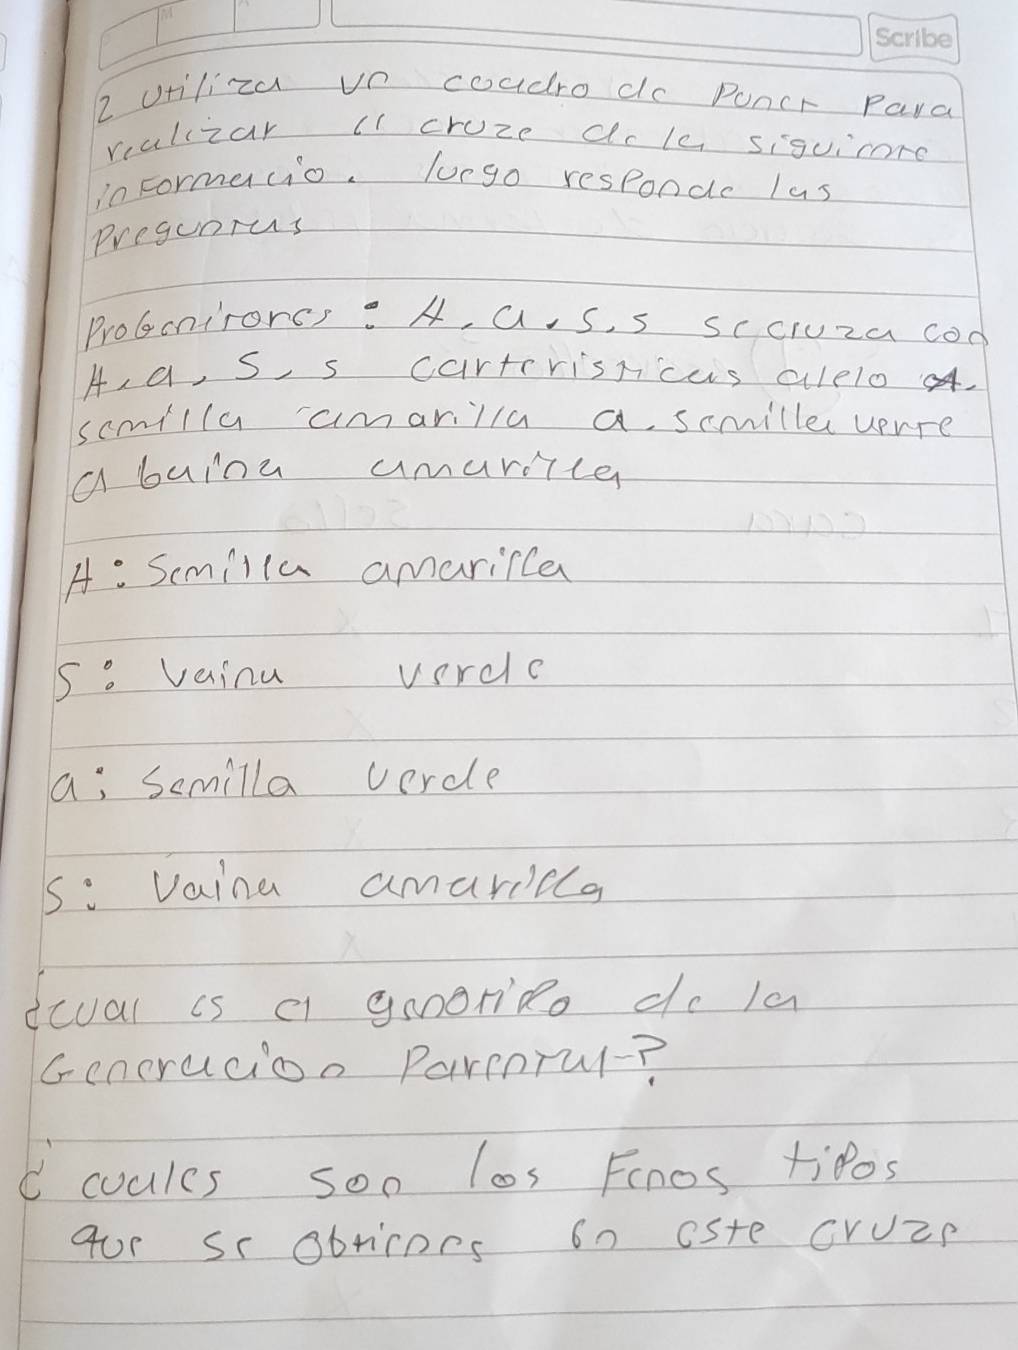 Scribe
2 Utiliza un coadro de Ponet Para
realizar el cruze de la siguiente
informacio. luego responde las
Preguntas
Progenitores: A, a, S, s se cruza con
A, a, S, s carteristicas alelo A.
semilla amarilla a. semilla verre
a baina amarilla
A: Semilla amarilla
S: Vaina verde
a: Semilla verde
s: Vaina amarilla
¿cual es el genotipo de la
Generacion Parental?
¿cuales son los Fenos tipos
que se obtienes en este cruze